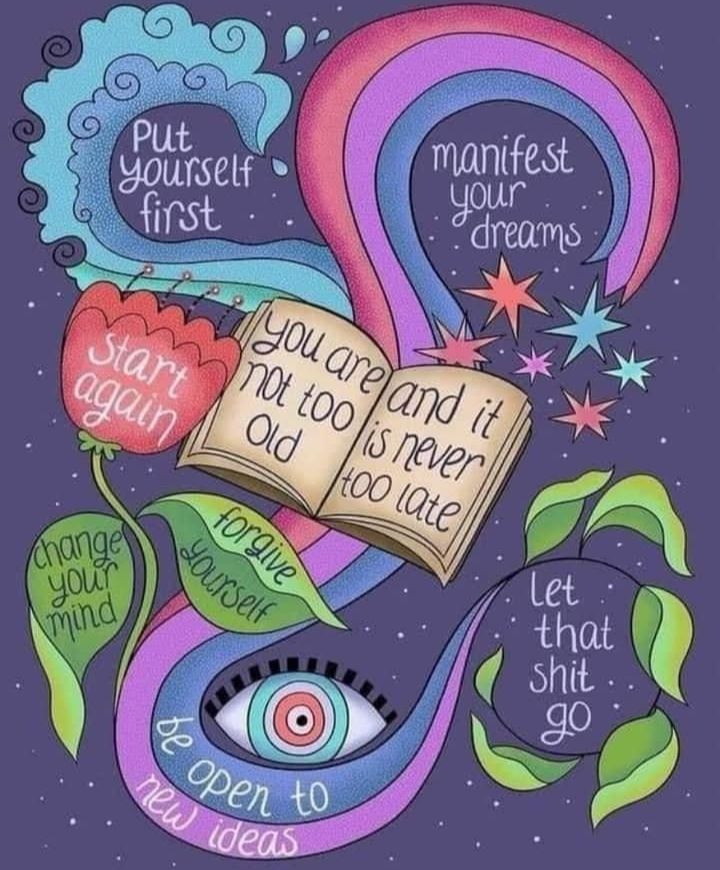 Put
yourself
first
manifest
your
dreams
Start
again
you are
not too
old
and it
is never
too late
change
your
mind
forgive
yourself
let
that
shit
go
be open to
new ideas